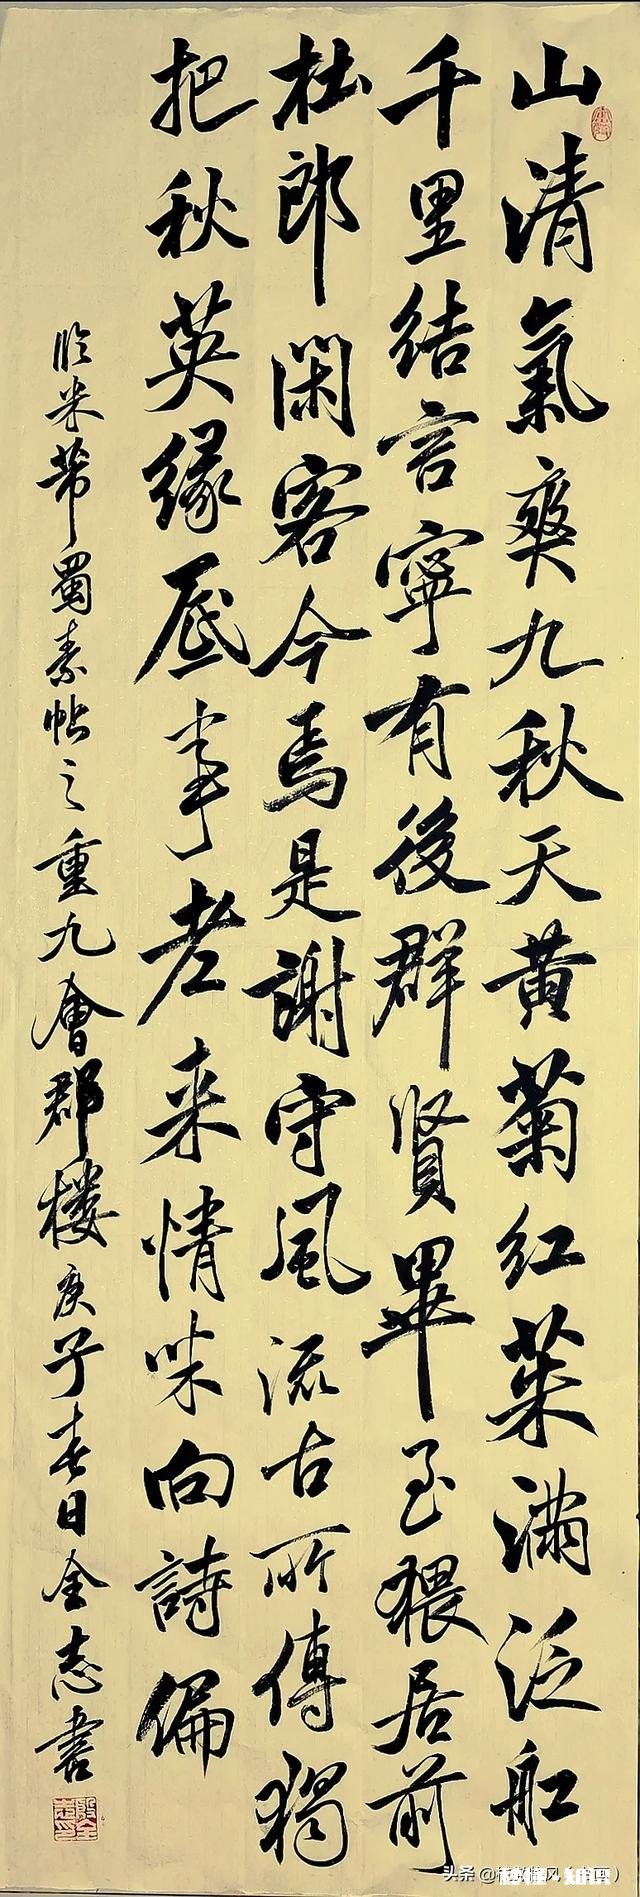 山清氣爽九秋天黄菊红茱滿泛船
千里结言寧有後群賢畢至猥居前
杜郎閑客今焉是謝守風流古所傳獨
把秋英緣底事老来情味向詩偏
临米芾蜀素帖之重九會郡楼庚子春日全志書
头条 @